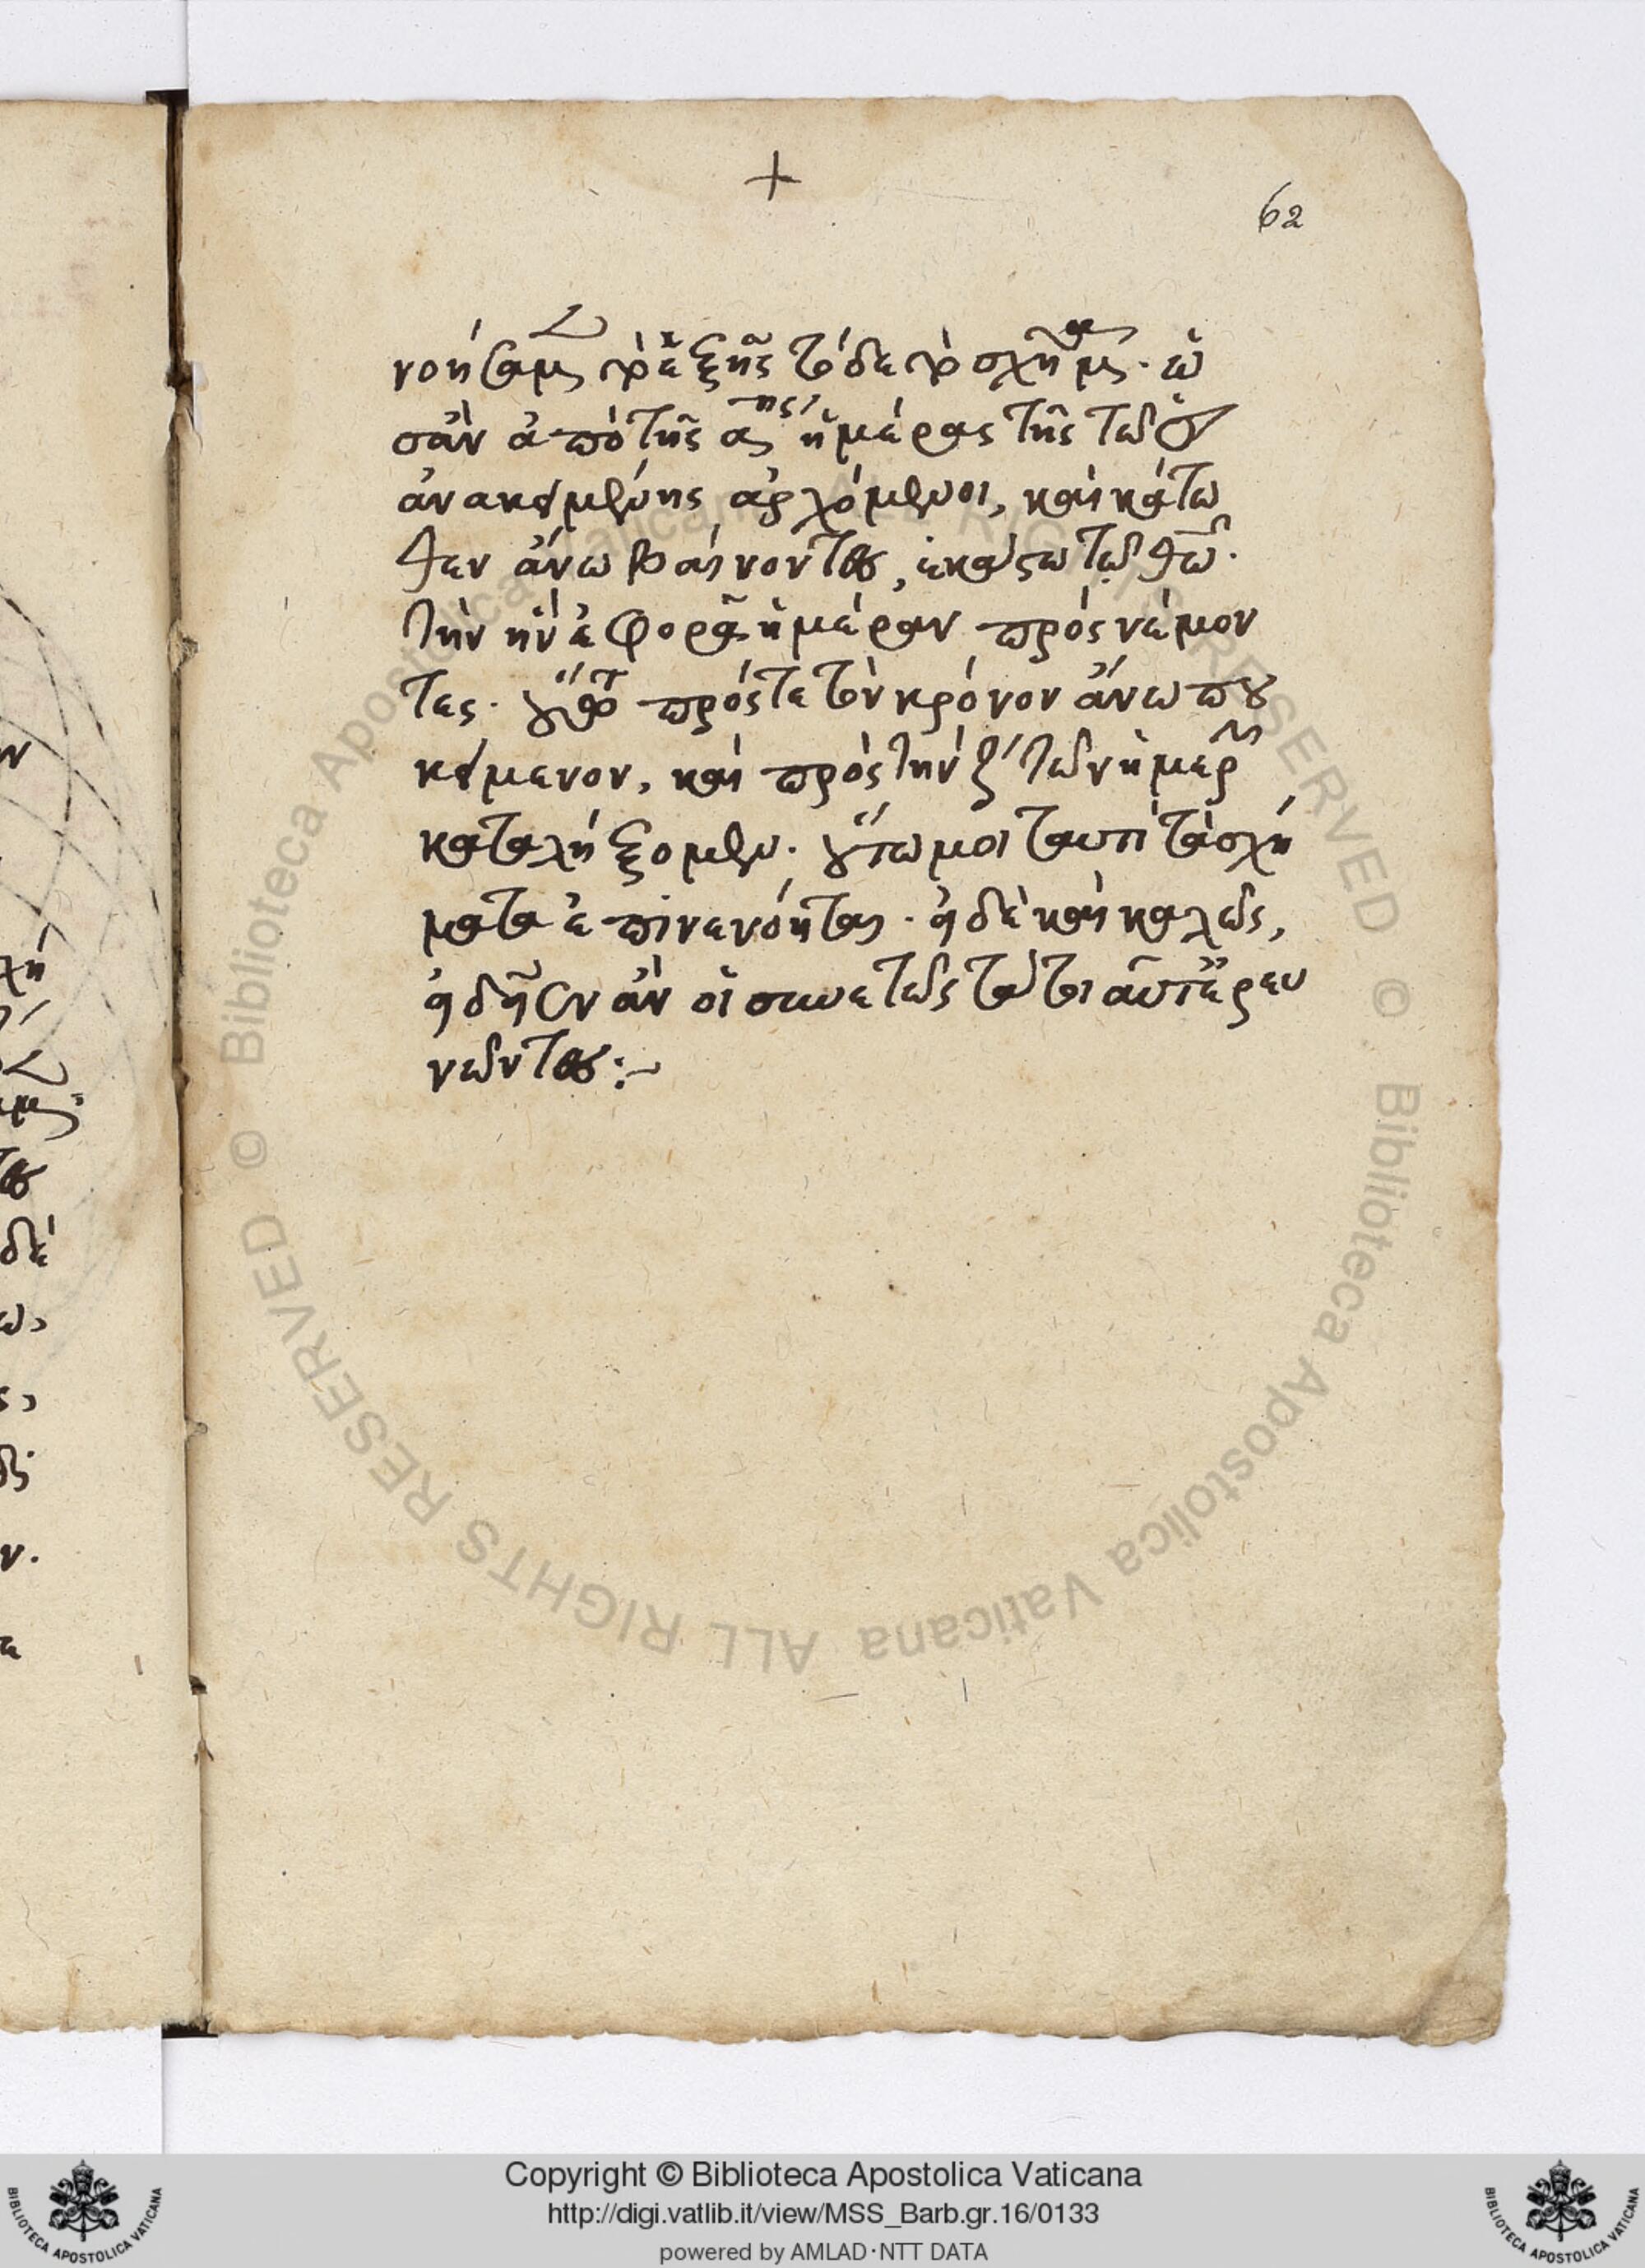 62
νοήσαμεν τὸ ἑξῆς τόδε τὸ σχῆμα· ὡ
σὰν ἀπὸ τῆς α ης ἡμέρας τῆς τῶ
ἀνακειμένης ἀρχόμενοι, καὶ κάτω
θεν ἄνω βαίνοντες, ἑκάστω τῶν θεῶν
τὴν ἣν ἐφορᾶ ἡμέραν πρόσνεμον
τες. οὕτω πρός τε τὸν κρόνον ἄνω που
κείμενον, καὶ πρὸς τὴν ζ τῶν ἡμερῶν
καταλήξομεν. οὕτω μοι ταυτὶ τὰ σχή
ματα ἐπινενόηται. εἰ δὲ καὶ καλῶς,
εἰδεῖεν ἂν οἱ συνετῶς
νῶντες:~
© Biblioteca Apostolica Vaticana ALL RIGHTS RESERVED © Biblioteca Apostolica Vaticana ALL RIGHTS RESERVED
Copyright © Biblioteca Apostolica Vaticana
http://digi.vatlib.it/view/MSS_Barb.gr.16/0133
powered by AMLAD·NTT DATA
BIBLIOTECA APOSTOLICA VATICANA
BIBLIOTECA APOSTOLICA VATICANA